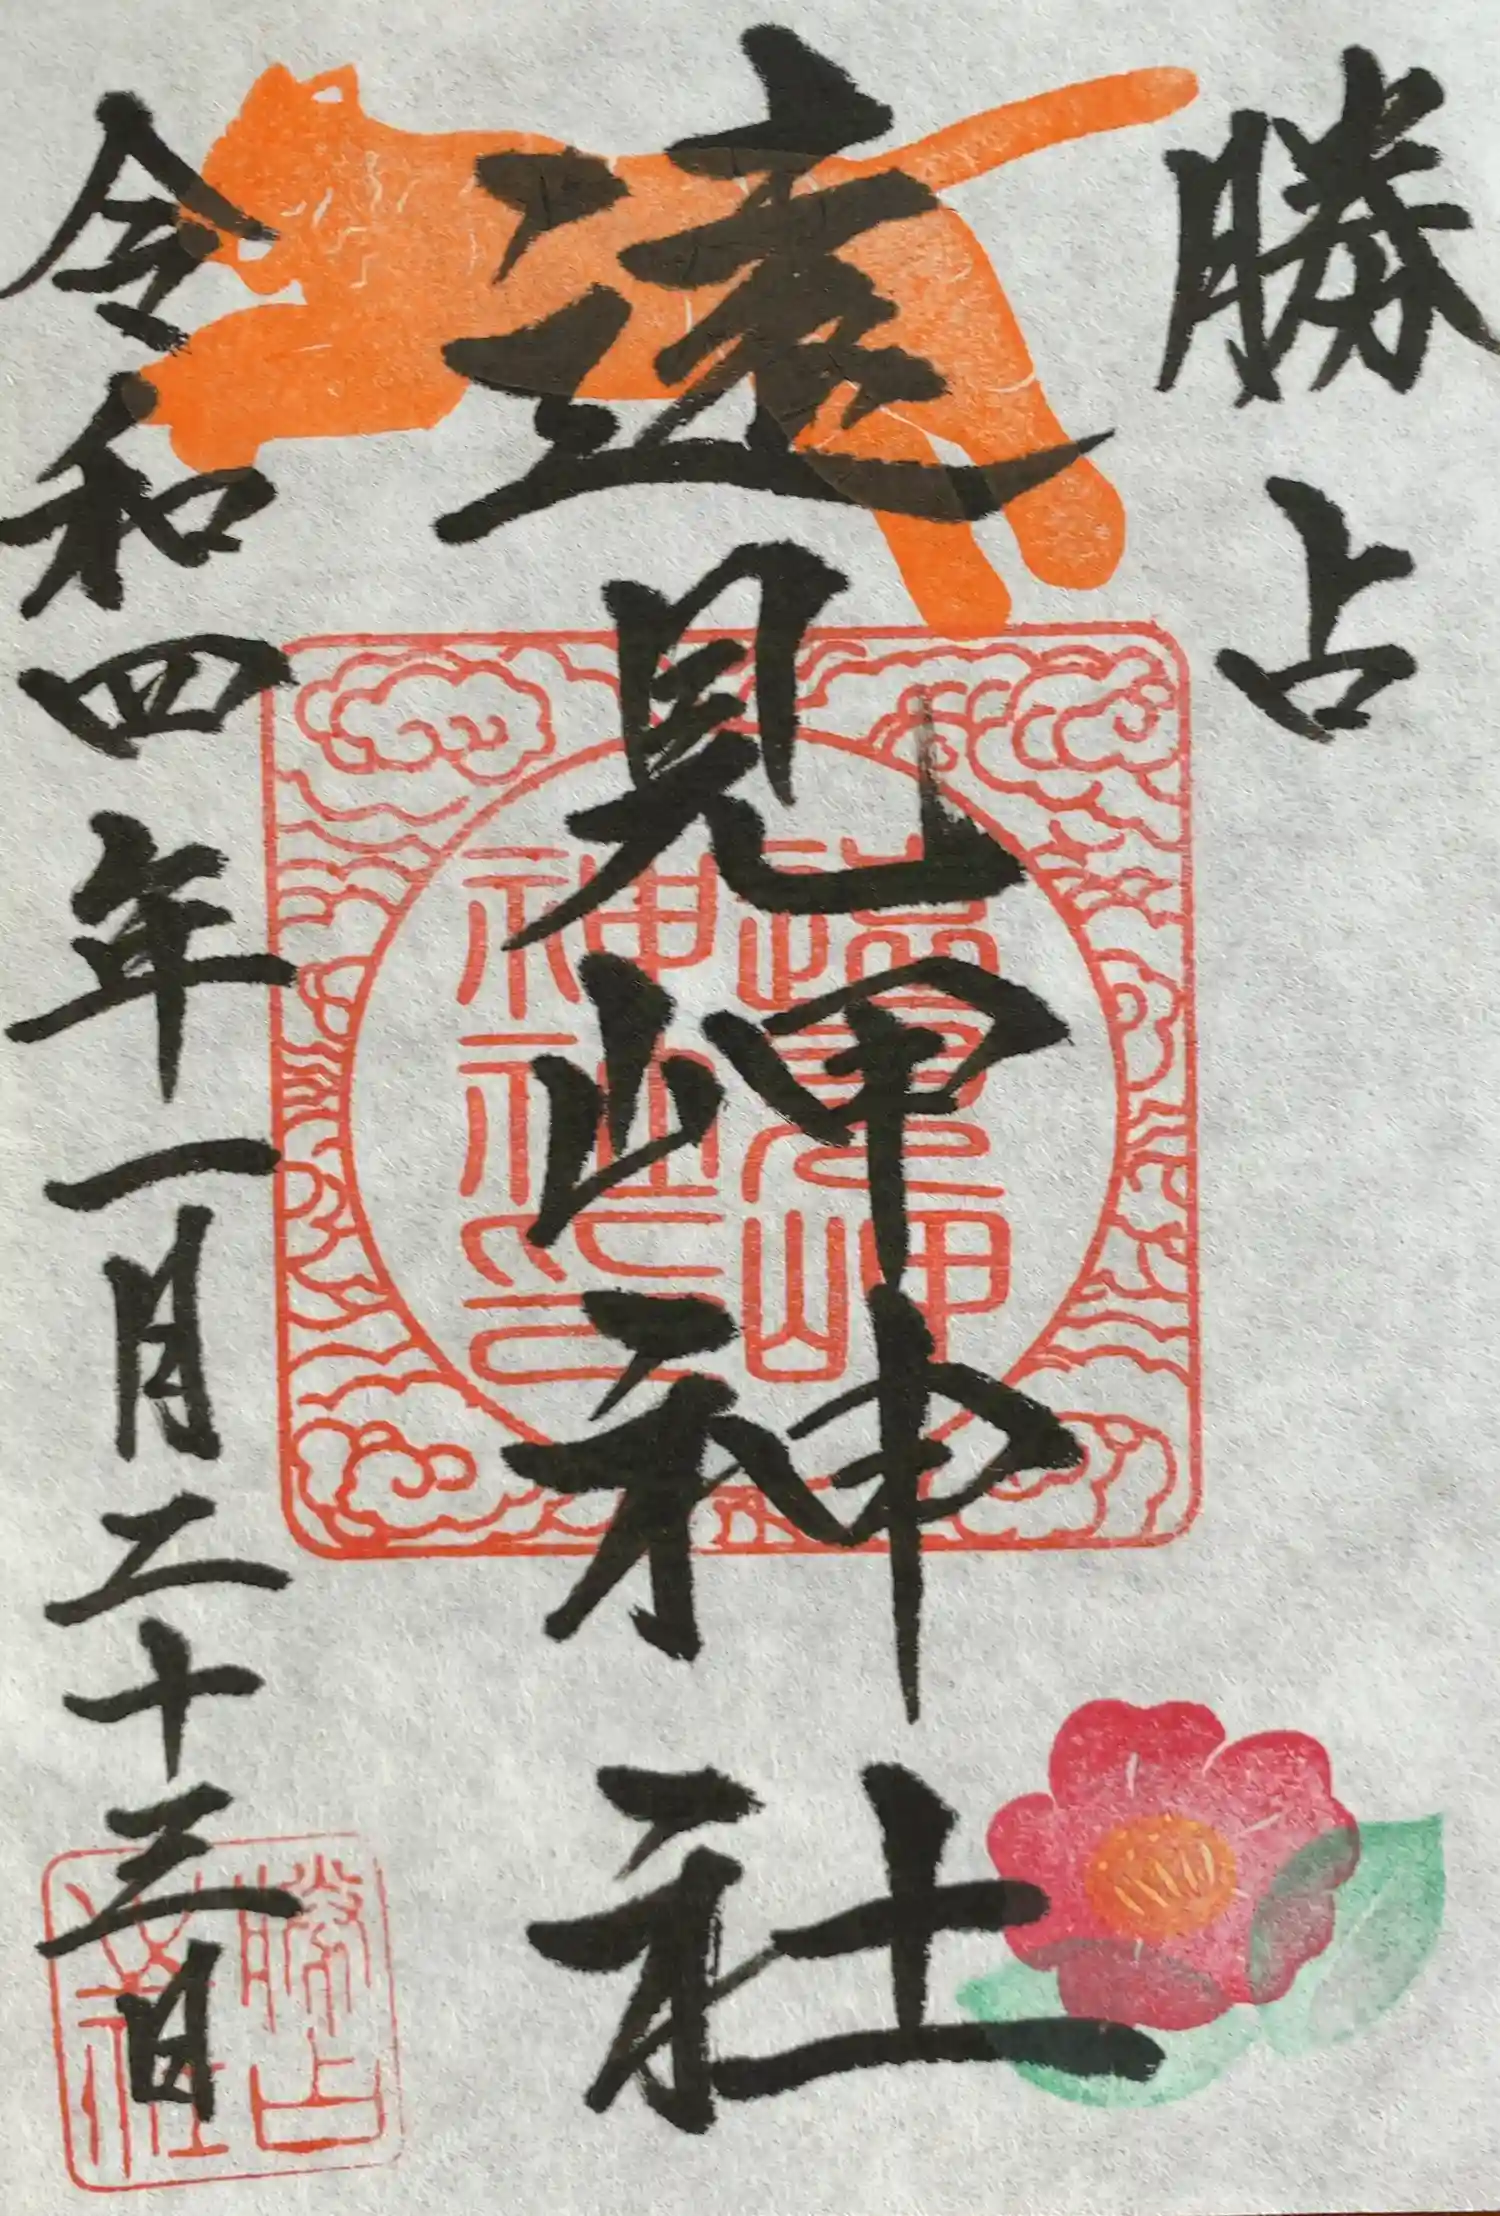 勝占
遠見岬神社
令和四年一月二十三日
遠見岬
神社印
勝占